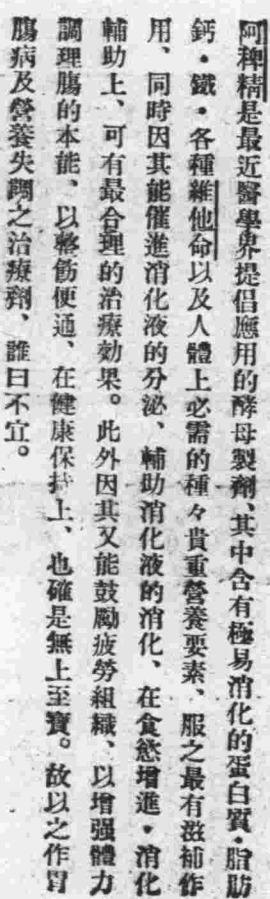 阿稗精是最近醫學界提倡應用的酵母製劑、其中含有極易消化的蛋白質・脂肪
鈣・鐵・各種維他命以及人體上必需的種々貴重營養要素、服之最有滋補作
用、同時因其能催進消化液的分泌、輔助消化液的消化、在食慾增進・消化
輔助上、可有最合理的治療効果。此外因其又能鼓勵疲勞組織、以增强體力
調理腸的本能、以整飭便通、在健康保持上、也確是無上至寶。故以之作胃
腸病及營養失調之治療劑、誰曰不宜。